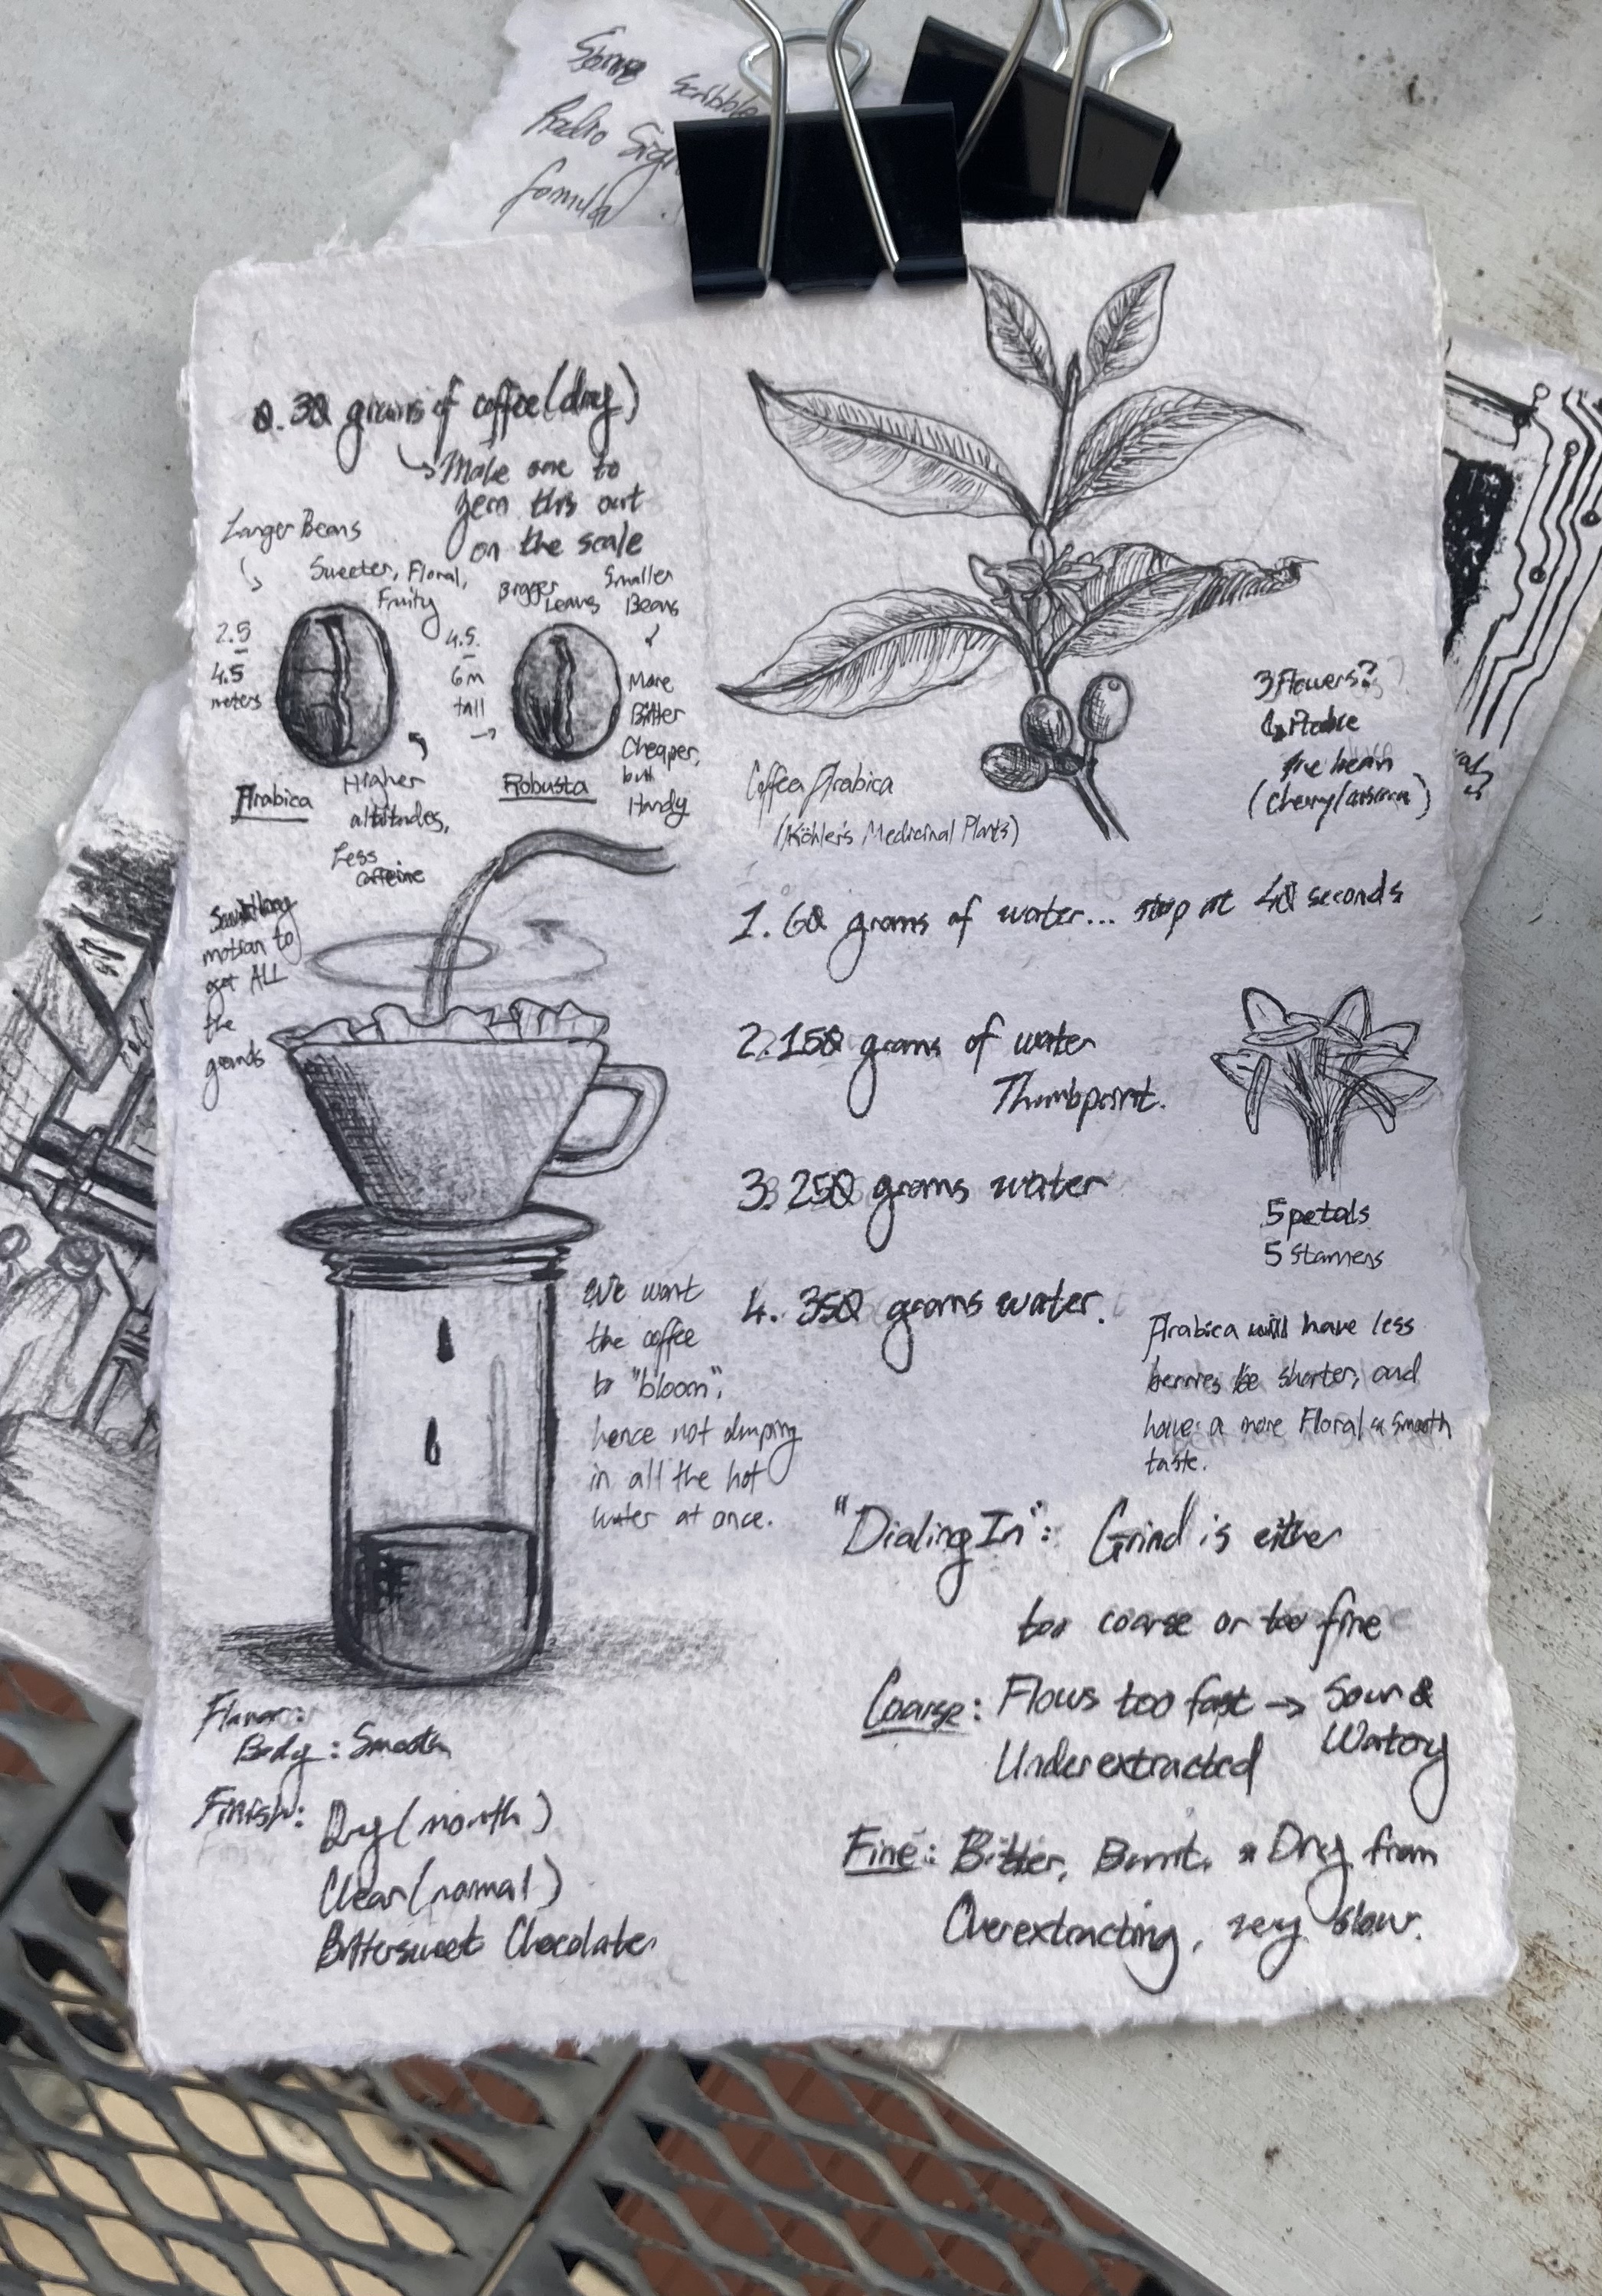 Some scribble
Radio Sig
formula
0. 30 grams of coffee (dry)
Make one to
zero this out
on the scale
Larger Beans
Sweeter, Floral,
Fruity
2.5
-
4.5
meters
Arabica
Higher
altitudes,
Less
caffeine
Bigger
Leaves
Smaller
Beans
4.5
-
6m
tall
Robusta
More
Bitter
Cheaper,
but
Hardy
Coffea Arabica
(Köhler's Medicinal Plants)
3 Flowers?
the bean
motion to
get ALL
the
grounds
1. 60 grams of water... stop at 40 seconds
2. 150 grams of water
Thumbpoint.
3. 250 grams water
4. 350 grams water.
5 petals
5 Stamens
We want
the coffee
to "bloom",
hence not dumping
in all the hot
water at once.
Arabica will have less
berries be shorter, and
have a more Floral & Smooth
taste.
"Dialing In": Grind is either
too coarse or too fine
Coarse: Flows too fast → Sour &
Watery
Underextracted
Fine: Bitter, Burnt, & Dry from
Overextracting, very slow.
Flavor:
Body: Smooth
Finish: Dry (mouth)
Clear (normal)
Bittersweet Chocolate